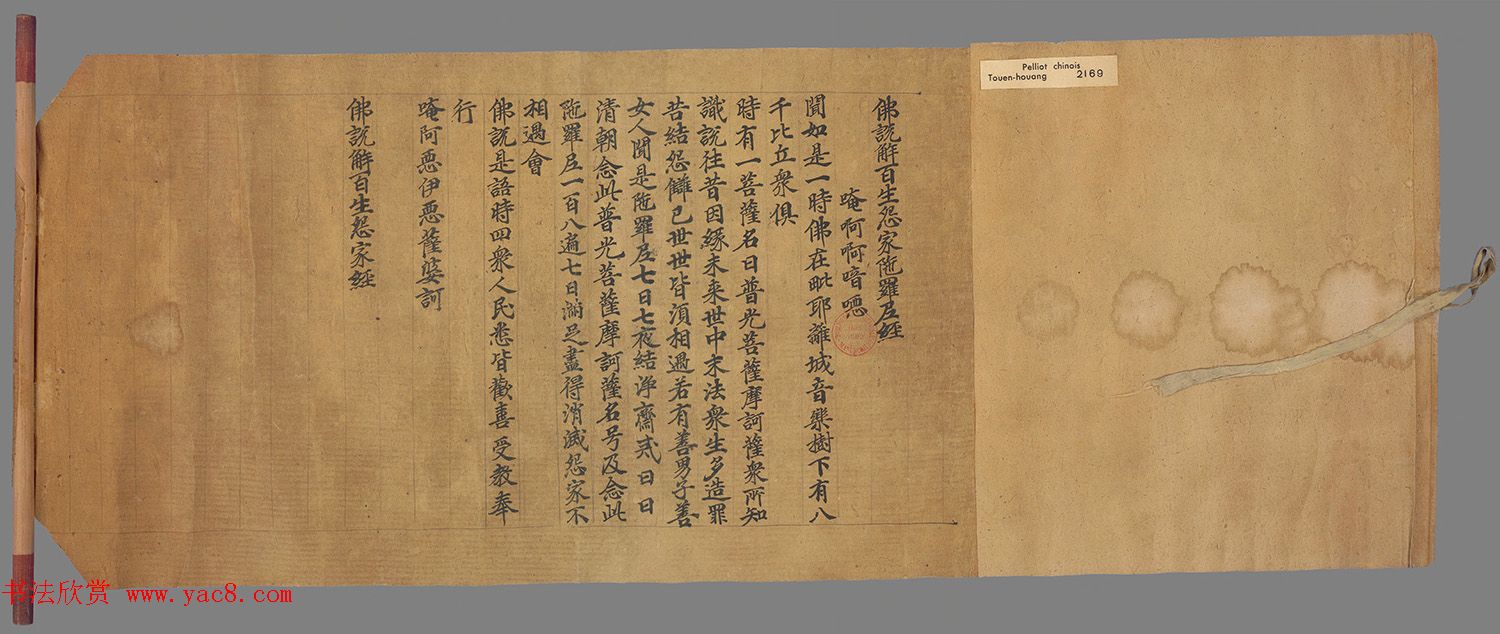 Pelliot chinois
Touen-houang 2169
佛説解百生怨家陁羅尼經
唵啊啊喑𭊌
聞如是一時佛在毗耶離城音樂樹下有八
千比丘衆俱
時有一菩薩名曰普光菩薩摩訶薩衆所知
識説往昔因緣未来世中末法衆生多造罪
苦結怨讎已世世皆須相遇若有善男子善
女人聞是陁羅尼七日七夜結淨齋戒日日
清朝念此普光菩薩摩訶薩名号及念此
陁羅尼一百八遍七日滿足盡得消滅怨家不
相遇會
佛説是語時四衆人民悉皆歡喜受教奉
行
唵阿惡伊惡薩婆訶
佛説解百生怨家經
书法欣赏 www.yac8.com